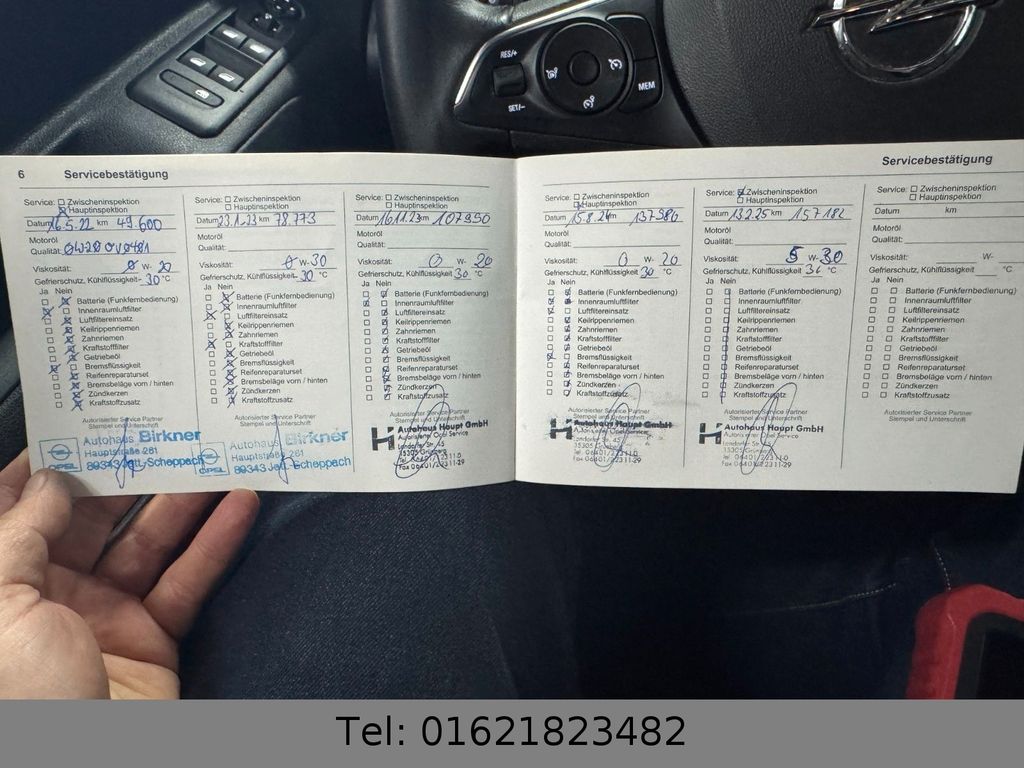 RES/+
SET/-
MEM
6 Servicebestätigung
Service: Zwischeninspektion
Hauptinspektion
Datum 16.5.22 km 49.600
Motoröl
Qualität: 0W20 OV0401
Viskosität: 0 W- 20
Gefrierschutz, Kühlflüssigkeit- 30 °C
Ja Nein
Batterie (Funkfernbedienung)
Innenraumluftfilter
Luftfiltereinsatz
Keilrippenriemen
Zahnriemen
Kraftstofffilter
Getriebeöl
Bremsflüssigkeit
Reifenreparaturset
Bremsbeläge vorn / hinten
Zündkerzen
Kraftstoffzusatz
Autorisierter Service Partner
Stempel und Unterschrift
OPEL
Autohaus Birkner
Hauptstraße 261
89343 Jett.-Scheppach
Service: Zwischeninspektion
Hauptinspektion
Datum 23.1.23 km 78.773
Motoröl
Qualität:
Viskosität: 0 W-30
Gefrierschutz, Kühlflüssigkeit 30 °C
Ja Nein
Batterie (Funkfernbedienung)
Innenraumluftfilter
Luftfiltereinsatz
Keilrippenriemen
Zahnriemen
Kraftstofffilter
Getriebeöl
Bremsflüssigkeit
Reifenreparaturset
Bremsbeläge vorn / hinten
Zündkerzen
Kraftstoffzusatz
Autorisierter Service Partner
Stempel und Unterschrift
OPEL
Autohaus Birkner
Hauptstraße 261
89343 Jett.-Scheppach
Service: Zwischeninspektion
Hauptinspektion
Datum 16.11.23 km 107950
Motoröl
Qualität:
Viskosität: 0 W- 20
Gefrierschutz, Kühlflüssigkeit 30 °C
Ja Nein
Batterie (Funkfernbedienung)
Innenraumluftfilter
Luftfiltereinsatz
Keilrippenriemen
Zahnriemen
Kraftstofffilter
Getriebeöl
Bremsflüssigkeit
Reifenreparaturset
Bremsbeläge vorn / hinten
Zündkerzen
Kraftstoffzusatz
Autorisierter Service Partner
Stempel und Unterschrift
Autohaus Haupt GmbH
Autorisierter Opel Service
Londorfer Str. 45
Tel. 06401/22311-0
Fax 06401/22311-29
Servicebestätigung
Service: Zwischeninspektion
Hauptinspektion
Datum 15.8.24 km 137980
Motoröl
Qualität:
Viskosität: 0 W- 20
Gefrierschutz, Kühlflüssigkeit 30 °C
Ja Nein
Batterie (Funkfernbedienung)
Innenraumluftfilter
Luftfiltereinsatz
Keilrippenriemen
Zahnriemen
Kraftstofffilter
Getriebeöl
Bremsflüssigkeit
Reifenreparaturset
Bremsbeläge vorn / hinten
Zündkerzen
Kraftstoffzusatz
Autorisierter Service Partner
Stempel und Unterschrift
Autohaus Haupt GmbH
Autorisierter Opel Service
Londorfer Str. 45
Tel. 06401/22311-0
Fax 06401/22311-29
Service: Zwischeninspektion
Hauptinspektion
Datum 13.2.25 km 157182
Motoröl
Qualität:
Viskosität: 5 W- 30
Gefrierschutz, Kühlflüssigkeit °C
Ja Nein
Batterie (Funkfernbedienung)
Innenraumluftfilter
Luftfiltereinsatz
Keilrippenriemen
Zahnriemen
Kraftstofffilter
Getriebeöl
Bremsflüssigkeit
Reifenreparaturset
Bremsbeläge vorn / hinten
Zündkerzen
Kraftstoffzusatz
Autorisierter Service Partner
Stempel und Unterschrift
Autohaus Haupt GmbH
Autorisierter Opel Service
Londorfer Str. 45
Tel. 06401/22311-0
Fax 06401/22311-29
Service: Zwischeninspektion
Hauptinspektion
Datum km
Motoröl
Qualität:
Viskosität: W-
Gefrierschutz, Kühlflüssigkeit °C
Ja Nein
Batterie (Funkfernbedienung)
Innenraumluftfilter
Luftfiltereinsatz
Keilrippenriemen
Zahnriemen
Kraftstofffilter
Getriebeöl
Bremsflüssigkeit
Reifenreparaturset
Bremsbeläge vorn / hinten
Zündkerzen
Kraftstoffzusatz
Autorisierter Service Partner
Stempel und Unterschrift
Tel: 01621823482